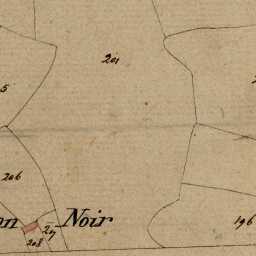 201
5
206
on Noir
207
208
196